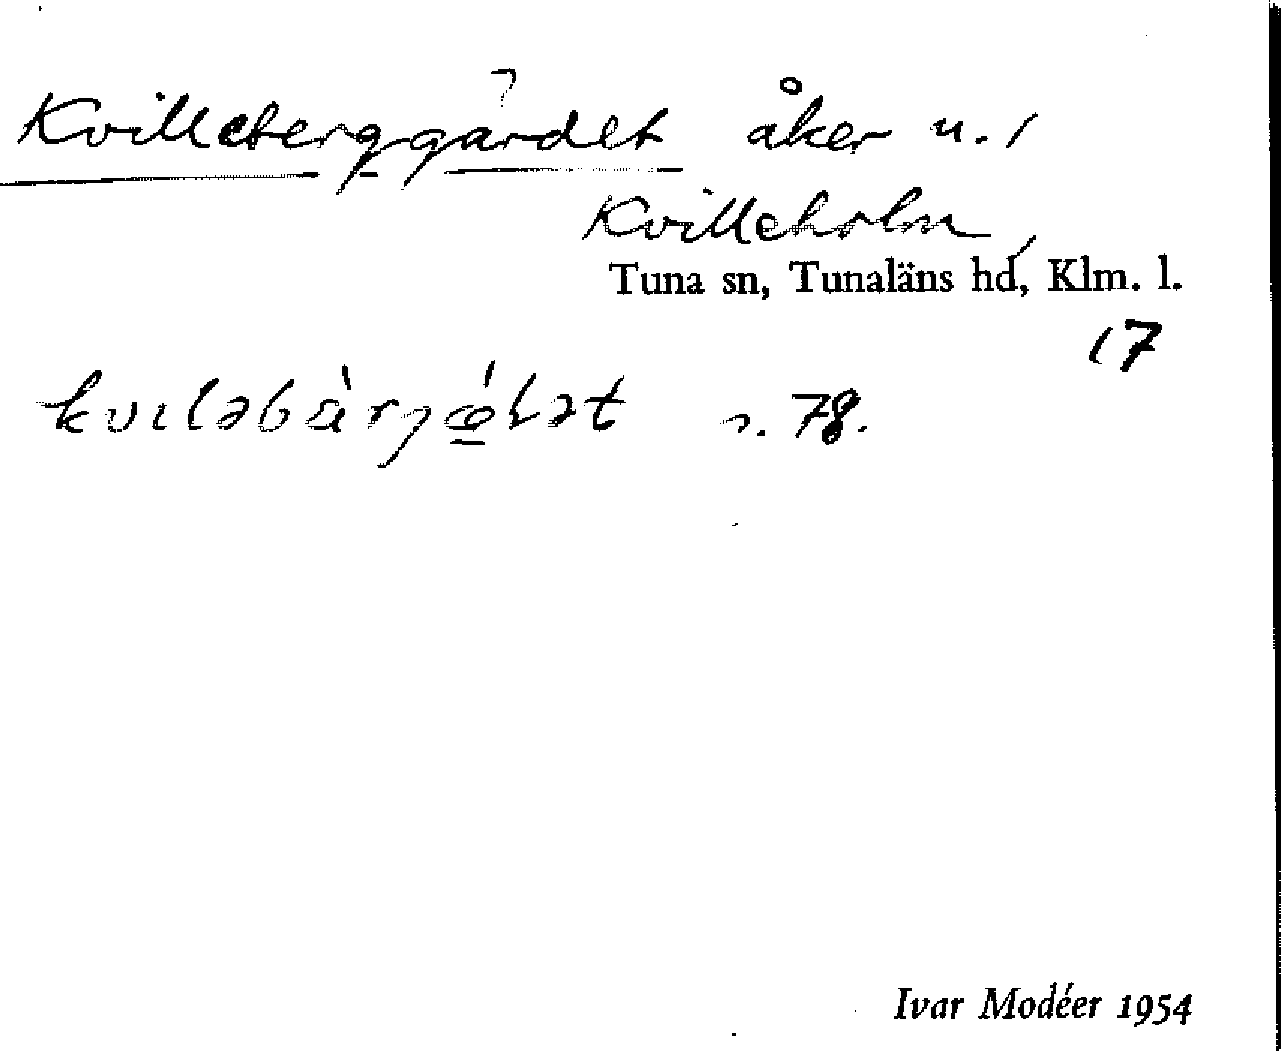 Kvilleberggärdet åker u. 1
Kvilleholm
Tuna sn, Tunaläns hd, Klm. l.
17
n. 78.
Ivar Modéer 1954